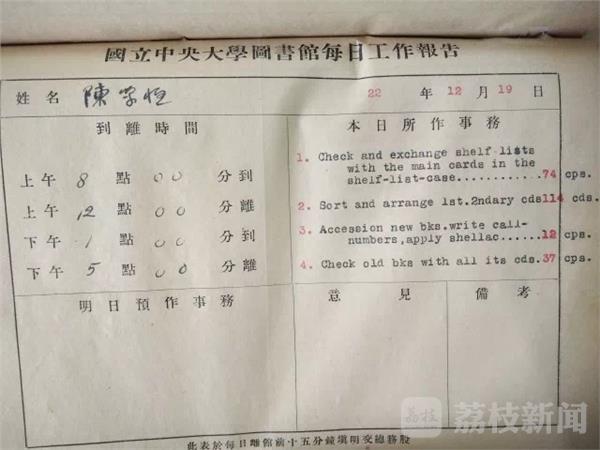 國立中央大學圖書館每日工作報告
姓名 陳學恒 22 年 12 月 19 日
到離時間
上午 8 點 00 分到
上午 12 點 00 分離
下午 1 點 00 分到
下午 5 點 00 分離
本日所作事務
1. Check and exchange shelf lists
with the main cards in the
shelf-list-case............74 cps.
2. Sort and arrange 1st.2ndary cds114 cds.
3. Accession new bks.write call-
numbers,apply shellac......12 cps.
4. Check old bks with all its cds.37 cps.
明日預作事務
意見
備考
此表於每日離館前十五分鐘填明交總務股
荔枝 荔枝新闻